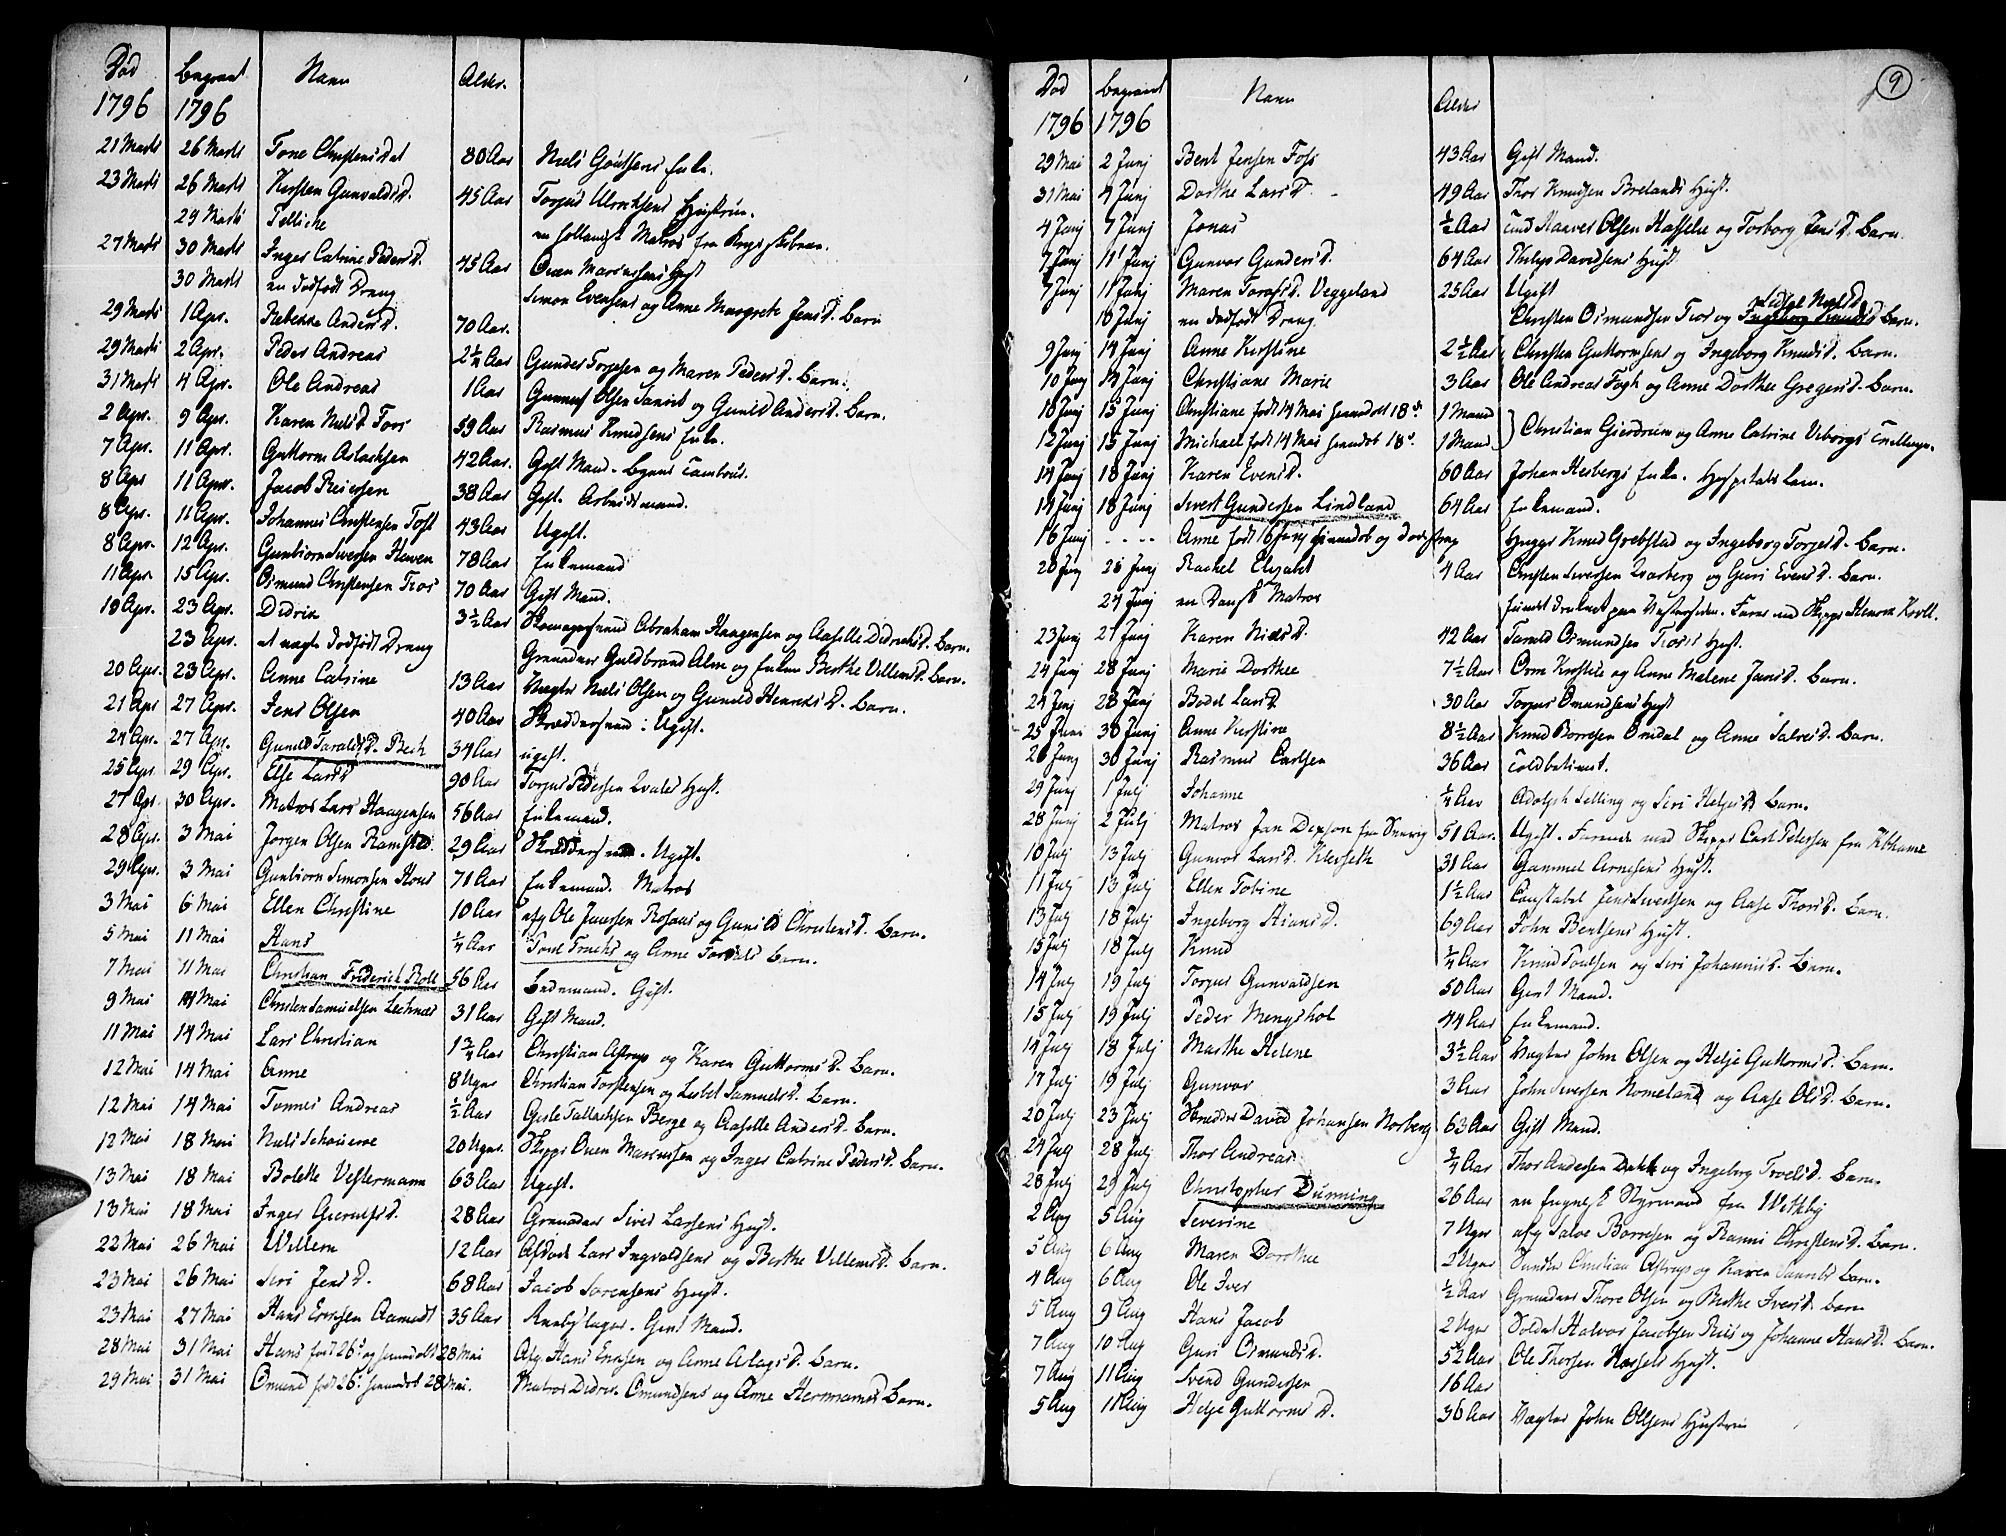 Død | begravet | Navn | Alder.
1796 | 1796
21 Marts | 26 Marts | Tone Christensdat | 80 Aar | Niels Goutsens Enke.
23 Marts | 26 Marts | Kirsten Gunvaldsd. | 45 Aar | Torjus Ulrichsens Hustrue.
29 Marts | Telliche | en hollandsk Matros fra Krigsskibene.
27 Marts | 30 Marts | Inger Catrine Pedersd. | 45 Aar | Oven Marcussens Hust
30 Marts | en dødfødt Dreng | Simon Evensens og Anne Margrete Jensd. Barn
29 Marts | 1 Apr. | Rebekka Andersd. | 70 Aar.
29 Marts | 2 Apr. | Peder Andreas | 2 1/4 Aar | Gunder Torjesen og Maren Pedersd. Barn.
31 Marts | 4 Apr. | Ole Andreas | 1 Aar | Olsen og Gunild Andersd. Barn.
2 Apr. | 9 Apr. | Karen Nielsd Foss | 59 Aar | Rasmus Knudsens Enke.
7 Apr. | 11 Apr. | Guttorm Aslachsen | 42 Aar. | Gift Mand. Byens Tambour.
8 Apr | 11 Apr. | Jacob Reiersen | 38 Aar | Gift. Arbeidsmand.
8 Apr. | 11 Apr. | Johannes Christensen Foss | 43 Aar | Ugift.
8 Apr. | 12 Apr. | Gunbiorn Sivertsen Haven | 78 Aar | Enkemand
11 Apr. | 15 Apr. | Osmund Christensen Tios | 70 Aar | Gift Mand.
19 Apr. | 23 Apr. | Didrik | 3 1/2 Aar | Skomagersvend Abraham Haagensen og Aaselle Didrichsd. Barn.
23 Apr. | et uægte dødfødt Dreng | Grenadeer Guldbrand Alm og Enken Berthe Villemsd. Barn.
20 Apr. | 23 Apr. | Anne Catrine | 13 Aar | Vægter Niels Olsen og Gunild Henrichsd. Barn.
21 Apr | 27 Apr. | Jens Olsen | 40 Aar | Skræddersvend: Ugift.
24 Apr. | 27 Apr. | Gunild Taraldsd. Bech | 34 Aar | ugift.
25 Apr. | 29 Apr. | Else Larsd | 90 Aar | Torjus Pedersen Hust.
27 Apr. | 30 Apr. | Matros Lars Haagensen | 56 Aar | Enkemand.
28 Apr. | 3 Mai | Jørgen Olsen | 29 Aar | Skræddersvend. Ugift.
29 Apr. | 3 Mai | Gunbiorn Simonsen | 71 Aar | Enkemand. Matros
3 Mai | 6 Mai | Ellen Christine | 10 Aar | afg Ole Rosaas og Gunild Christensd. Barn.
5 Mai | 11 Mai | Hans | 1/4 Aar | og Anne Barn.
7 Mai | 11 Mai | Christian Friderich Holl | 56 Aar | Bedemand. Gift.
9 Mai | 14 Mai | Christen Samuelsen | 31 Aar | Gift Mand.
11 Mai | 14 Mai | Lars Christian | 1 3/4 Aar | Christian Astrup og Karen Guttormsd. Barn.
12 Mai | 14 Mai | Anne | 8 Uger | Christian Torstensen og Lisbet Samuelsd. Barn.
12 Mai | 14 Mai | Tønnes Andreas | 1/2 Aar | Gisle Tallachsen Berge og Aaselle Andersd. Barn.
12 Mai | 18 Mai | Niels | 20 Uger. | Skipper Oven Marcussen og Inger Catrine Pedersd. Barn.
13 Mai | 18 Mai | Bolette Vestermann | 63 Aar | Ugift.
13 Mai | 18 Mai | Inger | 28 Aar | Grenadeer Siver Larsens Hust.
22 Mai | 26 Mai | Willem | 12 Aar | Afdøde Lars Ingvaldsens og Berthe Villemsd. Barn.
23 Mai | 26 Mai | Siri Jensd. | 68 Aar | Jacob Sørensens Hust.
23 Mai | 27 Mai | Hans Ericksen Aamodt | 35 Aar | Gift Mand.
28 Mai | 31 Mai | Hans født 26 og hiemdøbt 28 Mai | Afg. Hans Ericksen og Anne Aslagsd. Barn.
29 Mai | 31 Mai | Omund født 26 hiemdøbt 28 Mai. | Matros Didrik Omundsens og Anne Hermansd Barn.
9
Død | begravet | Navn | Alder
1796 | 1796
29 Mai | 2 Junj | Bent Jensen Foss | 43 Aar | Gift Mand.
31 Mai | 4 Junj | Dorthe Larsd. | 49 Aar | Thor Knudsen Brelands Hust.
4 Junj | 7 Junj | Jonas | 1/2 Aar | Haaver Olsen og Torborg Jensd. Barn.
7 Junj | 11 Junj | Gunvor Gundersd. | 64 Aar | Philip Davidsens Hust.
7 Junj | 11 Junj | Maren Tarasd. Veggeland | 25 Aar | Ugift
10 Junj | en dødfødt Dreng | Christen Osmundsen Tios og Ingeborg Knudsd Barn.
Lisbet Nielsd
9 Junj | 14 Junj | Anne Kirstine | 2 1/2 Aar | Christen Guttormsens og Ingeborg Knudsd. Barn.
10 Junj | 14 Junj | Christiane Marie | 3 Aar | Ole Andreas Fogh og Anne Dorthea Gregersd. Barn.
10 Junj | 15 Junj | Christiane født 14 Mai hiemdøbt 18 | 1 Maaned
12 Junj | 15 Junj | Michael født 14 Mai hiemdøbt 18 | 1 Maaned | Christian Gierdrum og Anne Catrine Viborgs Tvillinger.
14 Junj | 18 Junj | Karen Evensd. | 60 Aar | Johan Hesbergs Enke. Hospitalslem.
14 Junj | 18 Junj | Sivert Gundersen Lindland | 64 Aar | Enkemand.
16 Junj | - - - - | Anne født 16 Junj hiemdøb og død | Knud Grebstad og Ingeborg Torjesd. Barn.
20 Junj | 25 Junj | Rachel Elisabet | 4 Aar | Christen Sivertsen Qvarberg og Guri Evensd. Barn.
24 Junj | en Dansk Matros | fundet druknet paa Vestersiden. Farne med Skipper Henrik
23 Junj | 27 Junj | Karen Nielsd. | 42 Aar | Tarald Osmundsen Tios's Hust.
24 Junj | 28 Junj | Marie Dorthea | 7 1/2 Aar | Orm og Anne Malene Jansd. Barn.
24 Junj | 28 Junj | Bodel Larsd | 30 Aar | Torjus Omundsens Hust
25 Juni | 30 Junj | Anne Kirstine | 8 1/2 Aar | Knud Borresen Omdal og Anne Salvesd. Barn.
26 Junj | 30 Junj | Rasmus Carlsen | 36 Aar | Toldbetient.
29 Junj | 1 Julj | Johanne | 1/4 Aar | Adolph Selling og Siri Helgesd Barn.
28 Junj | 2 Julj | Matros Jan | 51 Aar. | Ugift. Farende med Skipper Carl Petersen fra Kbhavne
10 Julj | 13 Julj | Gunvor Larsd. | 31 Aar | Gammel Arnesens Hust.
11 Julj | 13 Julj | Ellen Tobine | 1 1/2 Aar | Constabel Jens Sivertsen og Aase Thorsd. Barn.
13 Julj | 18 Julj | Ingeborg Stiansd. | 69 Aar | John Bentsens Hust.
15 Julj | 18 Julj | Knud | 1/4 Aar | Knud Poulsen og Siri Johannisd. Barn.
14 Julj | 19 Julj | Torjus Gunvaldsen | 50 Aar | Gift Mand.
15 Julj | 19 Julj | Peder Mengshol | 44 Aar | Enkemand.
14 Julj | 18 Julj | Marthe Helene | 3 1/2 Aar | Vægter John Olsen og Helje Guttormsd. Barn.
17 Julj | 19 Julj | Gunvor | 3 Aar | John Siversen Nomeland og Aase Olsd. Barn.
20 Julj | 23 Julj | Skrædder David Johansen Norberg | 63 Aar | Gift Mand.
24 Julj | 28 Julj | Thor Andreas | 3/4 Aar | Thor Andersen Dahl og Ingeborg Troelsd. Barn.
28 Julj | 29 Julj | Christopher Dunning | 26 Aar | en Engelsk Styrmand fra Withby
2 Aug | 5 Aug | Severine | 7 Uger | afg Salve Borresen og Ranni Christensd. Barn.
5 Aug | 6 Aug | Maren Dorthea | 2 Uger | Christian Astrup og Karen Barn.
4 Aug | 6 Aug | Ole Iver | 1/2 Aar | Grenadeer Thore Olsen og Berthe Iversd. Barn
5 Aug | 9 Aug | Hans Jacob | 2 Uger | Soldat Halvor Jacobsen Riis og Johanne Hansd. Barn.
7 Aug | 10 Aug | Guri Osmundsd. | 52 Aar | Ole Thorsen Hust.
7 Aug | 11 Aug | Svend Gundersen | 16 Aar
5 Aug | 11 Aug | Helje Guttormsd. | 36 Aar | Vægter John Olsens Hustrue